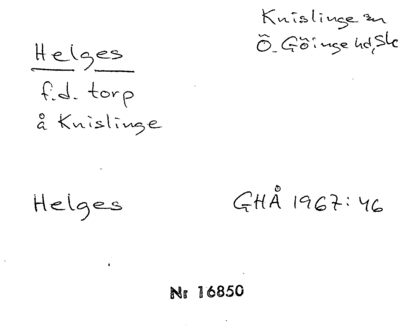 Knislinge sn
Ö. Göinge hd, Sk
Helges
f.d. torp
å Knislinge
Helges GHÅ 1967:46
Nr 16850